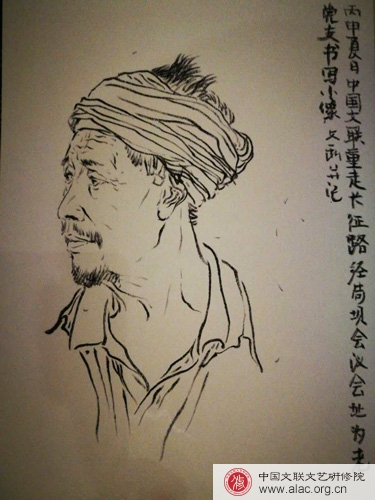 丙申夏日中国文联重走长征路经苟坝会议会址为老
党支书写小像 文 并记
中国文联文艺研修院
www.alac.org.cn